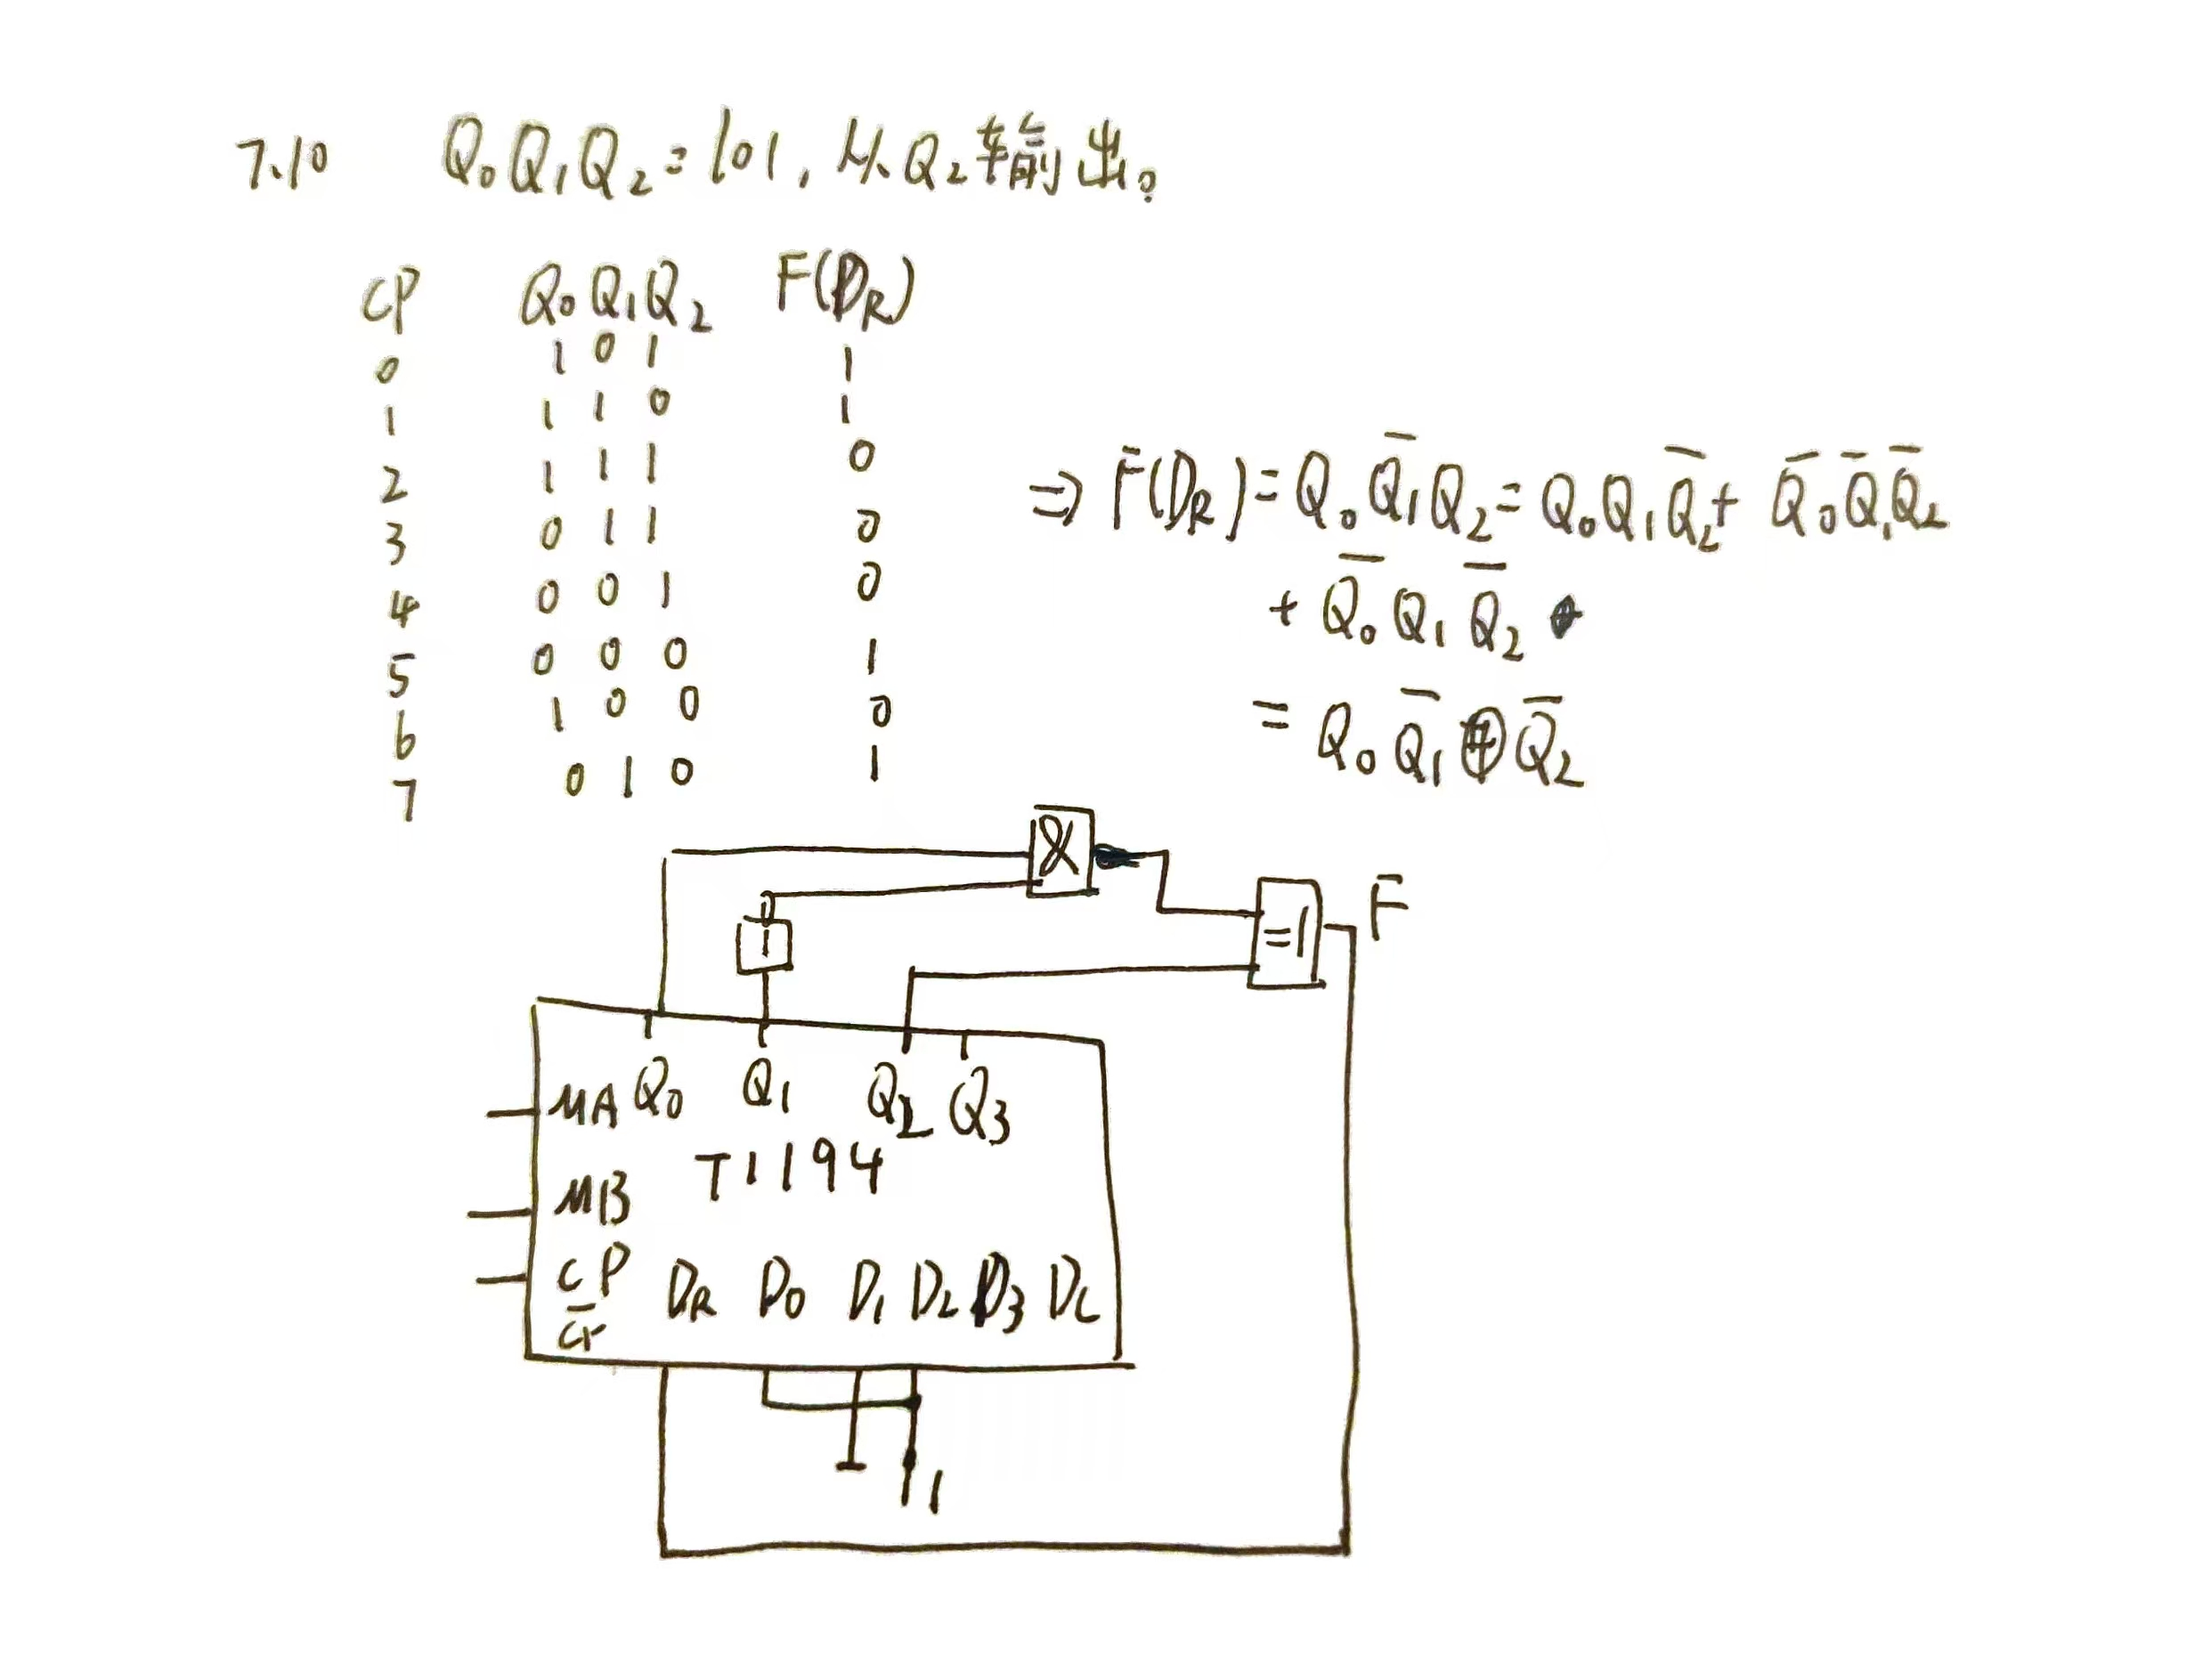 7.10 Q₀Q₁Q₂=101,从Q₂输出。
CP Q₀Q₁Q₂ F(D_R)
0 1 0 1 1
1 1 1 0 1
2 1 1 1 0
3 0 1 1 0
4 0 0 1 0
5 0 0 0 1
6 1 0 0 0
7 0 1 0 1
⇒ F(D_R)=Q₀Q̅₁Q₂=Q₀Q₁Q̅₂+Q̅₀Q̅₁Q̅₂
+Q̅₀Q₁Q̅₂
=Q₀Q̅₁⊕Q̅₂
&
1
=1
F
MA Q₀ Q₁ Q₂ Q₃
T1194
MB
CP D_R D₀ D₁ D₂ D₃ D_L
C̅r̅
1